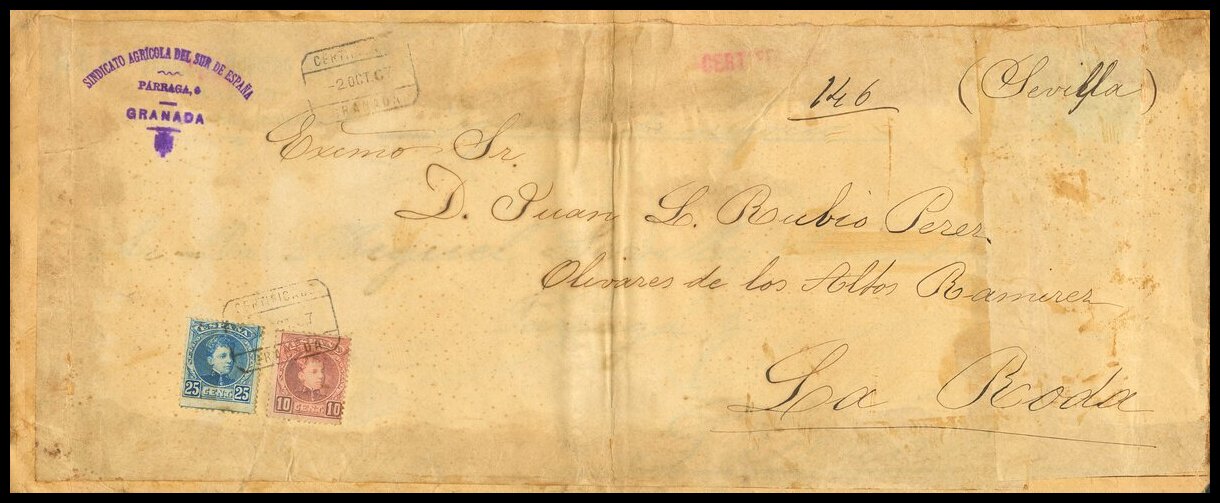 SINDICATO AGRÍCOLA DEL SUR DE ESPAÑA
PÁRRAGA,
GRANADA
-2 OCT 07
GRANADA
146
(Sevilla)
Exmo Sr.
D. Juan L. Rubio Perez
Olivares de los Altos Ramirez
La Roda
CERTIFICADO
7
GRANADA
ESPAÑA
25 CENT. 25
10 CENT. 10